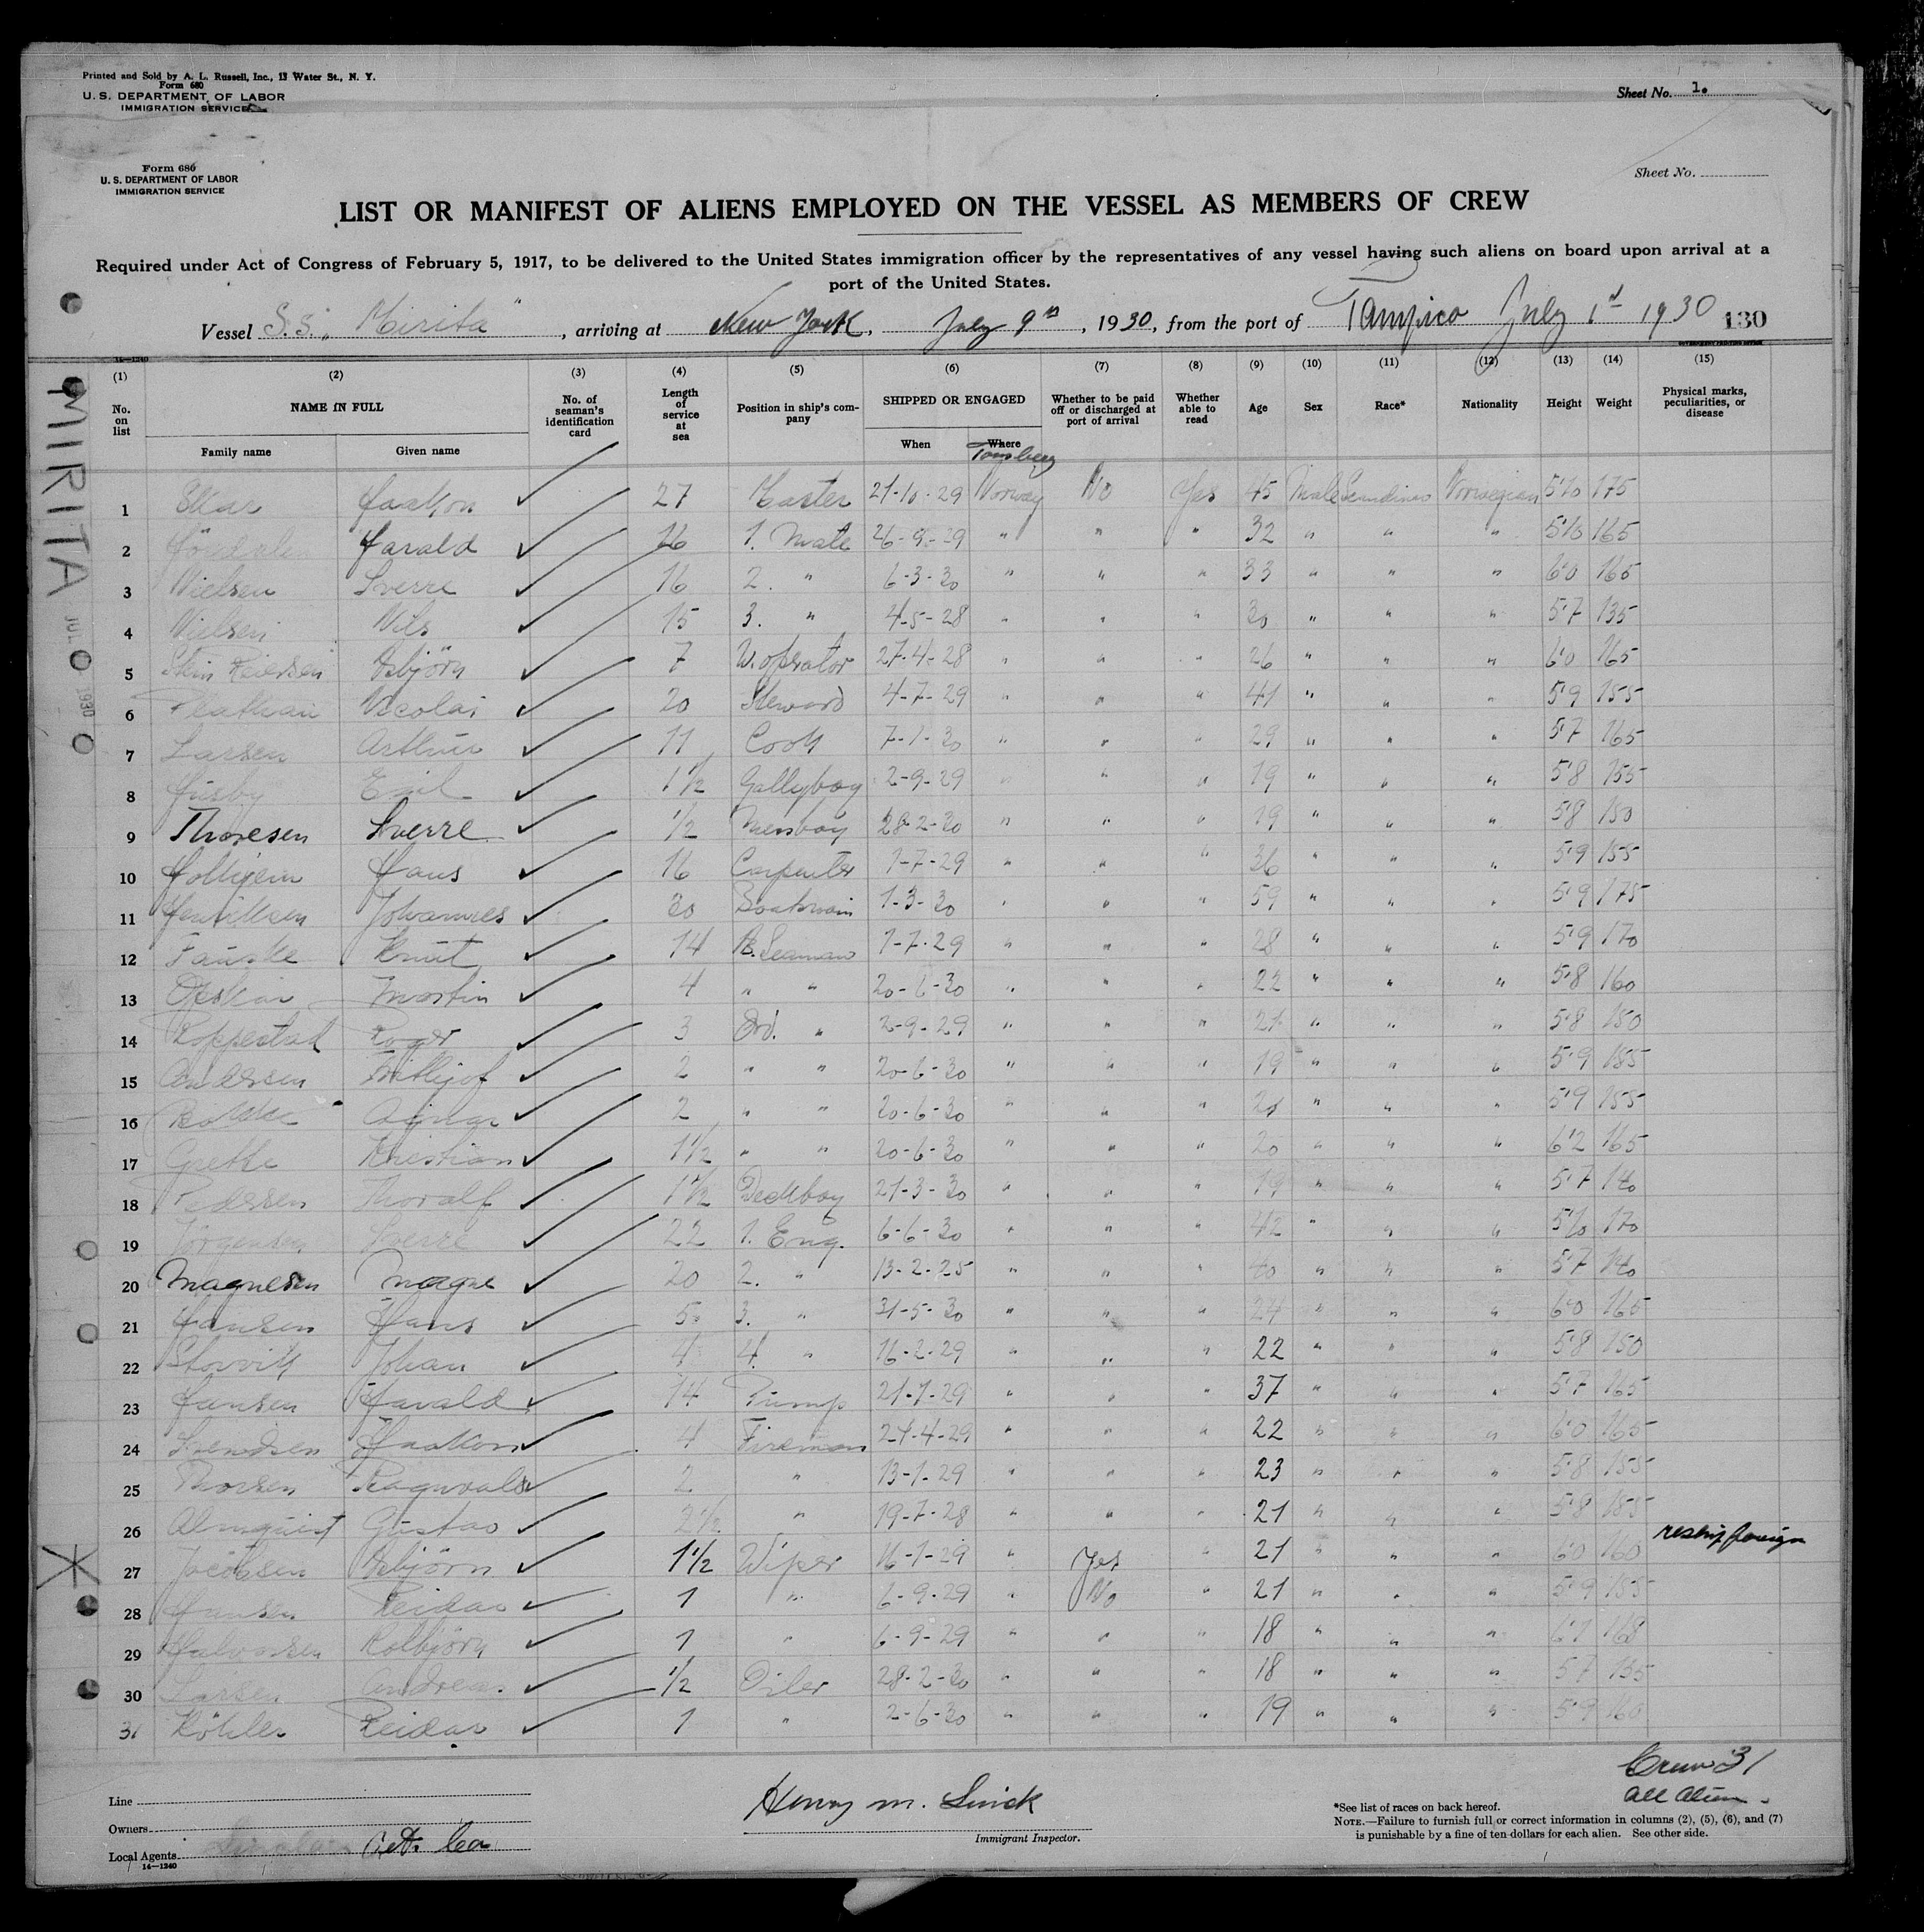 Printed and Sold by A. L. Russell, Inc., 13 Water St., N. Y.
Form 680
U. S. DEPARTMENT OF LABOR
IMMIGRATION SERVICE
Sheet No. 1.
Form 680
U. S. DEPARTMENT OF LABOR
IMMIGRATION SERVICE
Sheet No.
LIST OR MANIFEST OF ALIENS EMPLOYED ON THE VESSEL AS MEMBERS OF CREW
Required under Act of Congress of February 5, 1917, to be delivered to the United States immigration officer by the representatives of any vessel having such aliens on board upon arrival at a
port of the United States.
Vessel S.S. "Mirita", arriving at New York, July 9th, 1930, from the port of Tampico July 1st 1930 130
14—1240
(1) (2) (3) (4) (5) (6) (7) (8) (9) (10) (11) (12) (13) (14) (15)
No. on list NAME IN FULL No. of seaman's identification card Length of service at sea Position in ship's company SHIPPED OR ENGAGED Whether to be paid off or discharged at port of arrival Whether able to read Age Sex Race* Nationality Height Weight Physical marks, peculiarities, or disease
Family name Given name When Where
Tonsberg
MIRITA
JUL 1930
1 Haakon 27 Master 21-10-29 Norway No Yes 45 Male Scandinav Norwegian 5'10 175
2 Harald 16 1. Mate 26-9-29 " " " 32 " " " 5'10 165
3 Nielsen Sverre 16 2. " 6-3-30 " " " 33 " " " 6'0 165
4 Nielsen Nils 15 3. " 4-5-28 " " " 30 " " " 5'7 135
5 Stein Reiersen Asbjörn 7 W. oprator 27-4-28 " " " 26 " " " 6'0 165
6 Nicolai 20 Steward 4-7-29 " " " 41 " " " 5'9 155
7 Larsen Arthur 11 Cook 7-1-30 " " " 29 " " " 5'7 165
8 Husby Emil 1 1/2 Gallyboy 2-9-29 " " " 19 " " " 5'8 155
9 Thoresen Sverre 1/2 Messboy 28-2-30 " " " 19 " " " 5'8 150
10 Hans 16 Carpenter 1-7-29 " " " 36 " " " 5'9 155
11 Henriksen Johannes 30 Boatswain 1-3-30 " " " 59 " " " 5'9 175
12 Fauske Knut 14 Ab. Seaman 1-7-29 " " " 28 " " " 5'9 170
13 Martin 4 " " 20-6-30 " " " 22 " " " 5'8 160
14 Roppestad Roger 3 Ord. " 2-9-29 " " " 21 " " " 5'8 150
15 Andersen Frithjof 2 " " 20-6-30 " " " 19 " " " 5'9 155
16 2 " " 20-6-30 " " " 20 " " " 5'9 155
17 Grette Kristian 1 1/2 " " 20-6-30 " " " 20 " " " 6'2 165
18 Pedersen Thoralf 1 1/2 Deckboy 21-3-30 " " " 19 " " " 5'7 140
19 Jörgensen Sverre 22 1. Eng. 6-6-30 " " " 42 " " " 5'10 170
20 Magnesen Magne 20 2. " 13-2-25 " " " 40 " " " 5'7 140
21 Hansen Hans 5 3. " 31-5-30 " " " 24 " " " 6'0 165
22 Storvik Johan 4 4. " 16-2-29 " " " 22 " " " 5'8 150
23 Hansen Harald 14 Pump 21-1-29 " " " 37 " " " 5'7 165
24 Svendsen Haakon 4 Fireman 21-4-29 " " " 22 " " " 6'0 165
25 Thorsen Ragnvald 2 " 13-1-29 " " " 23 " " " 5'8 155
26 Almquist Gustav 2 1/2 " 19-7-28 " " " 21 " " " 5'8 155
27 Jacobsen Asbjörn 1 1/2 Wiper 16-1-29 " Yes " 21 " " " 6'0 160 reship foreign
28 Hansen Reidar 1 " 6-9-29 " No " 21 " " " 5'9 155
29 Halvorsen Kolbjörn 1 " 6-9-29 " " " 18 " " " 6'1 168
30 Larsen Andreas. 1/2 Oiler 28-2-30 " " " 18 " " " 5'7 135
31 Köhler Reidar 1 " 2-6-30 " " " 19 " " " 5'9 160
Crew 31
all alien.
Line
Owners
Local Agents Co.
14—1240
Henry M. Linck
Immigrant Inspector.
*See list of races on back hereof.
NOTE.—Failure to furnish full or correct information in columns (2), (5), (6), and (7)
is punishable by a fine of ten dollars for each alien. See other side.